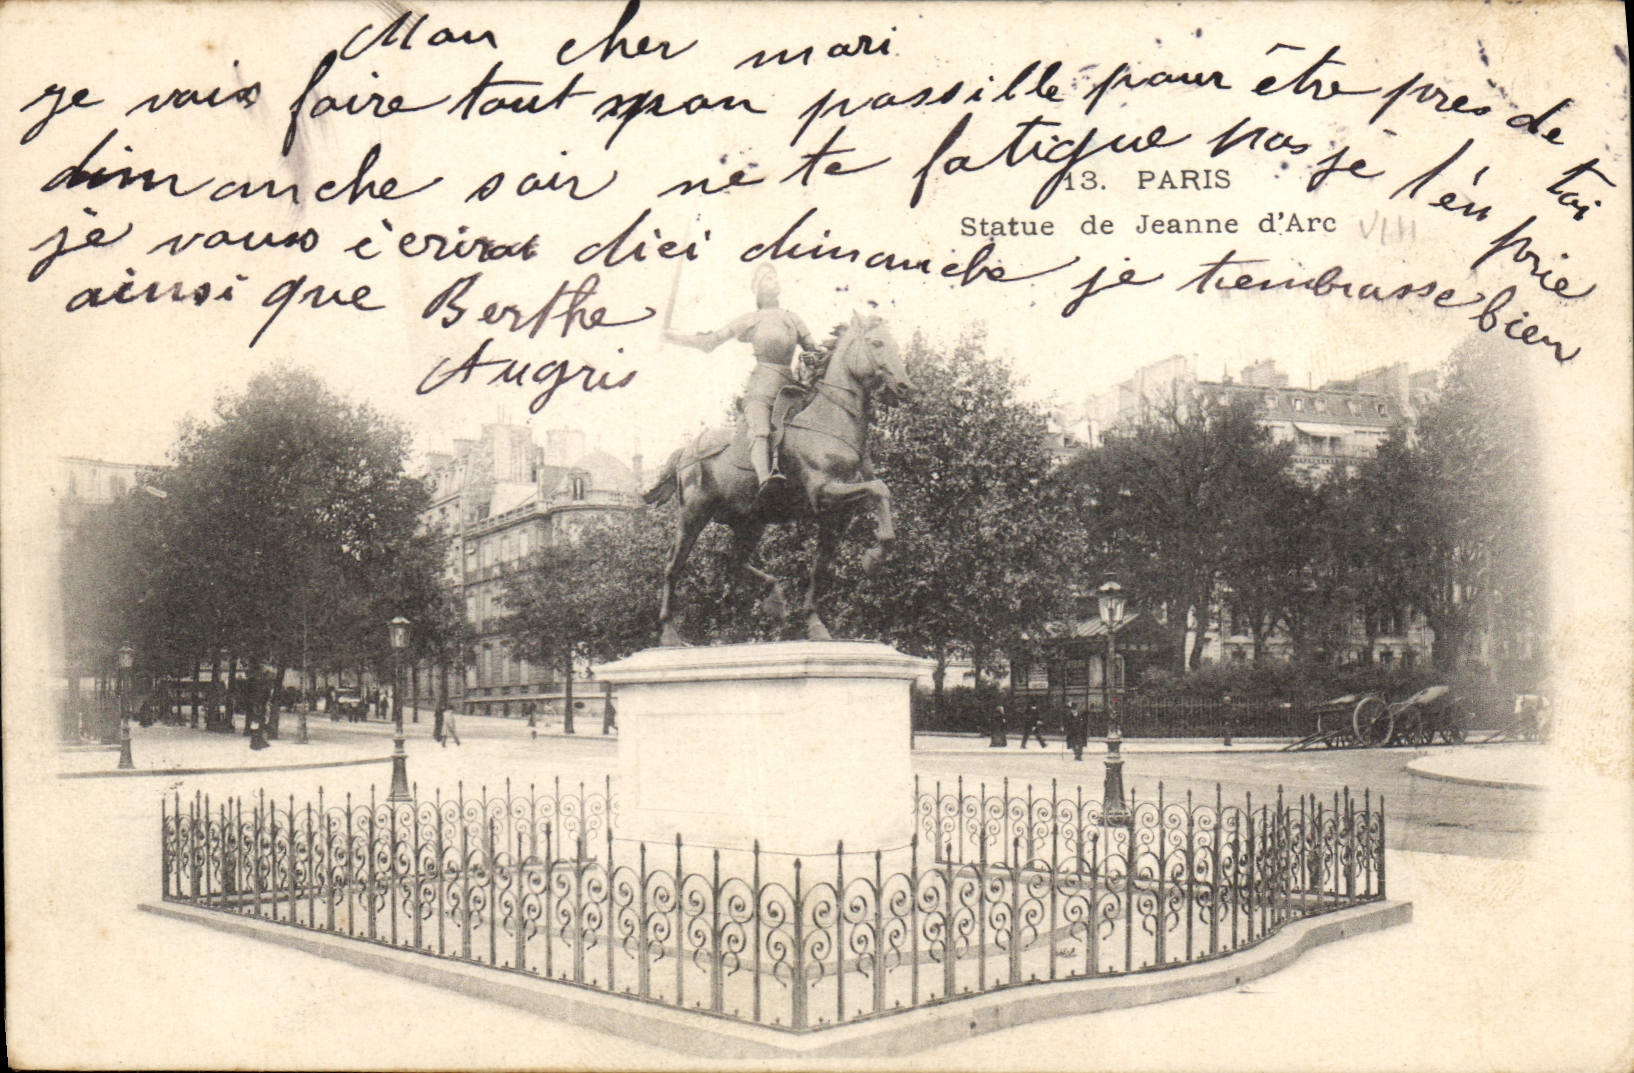 Mon cher mari
je vais faire tout mon possille pour être près de toi
dimanche soir ne te fatigue pas je t'en prie
je vous écrirai dici dimanche je tembrasse bien
ainsi que Berthe
Augris
13. PARIS
Statue de Jeanne d'Arc
VIII